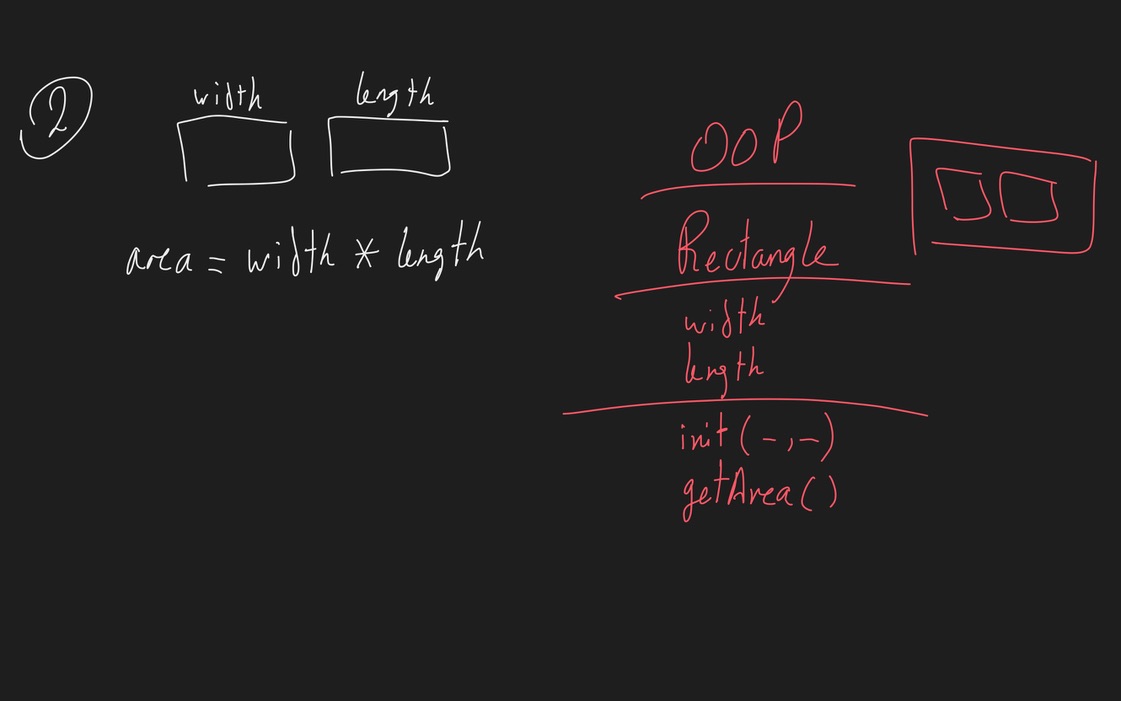 2
width length
area = width * length
OOP
Rectangle
width
length
init(-,-)
getArea()